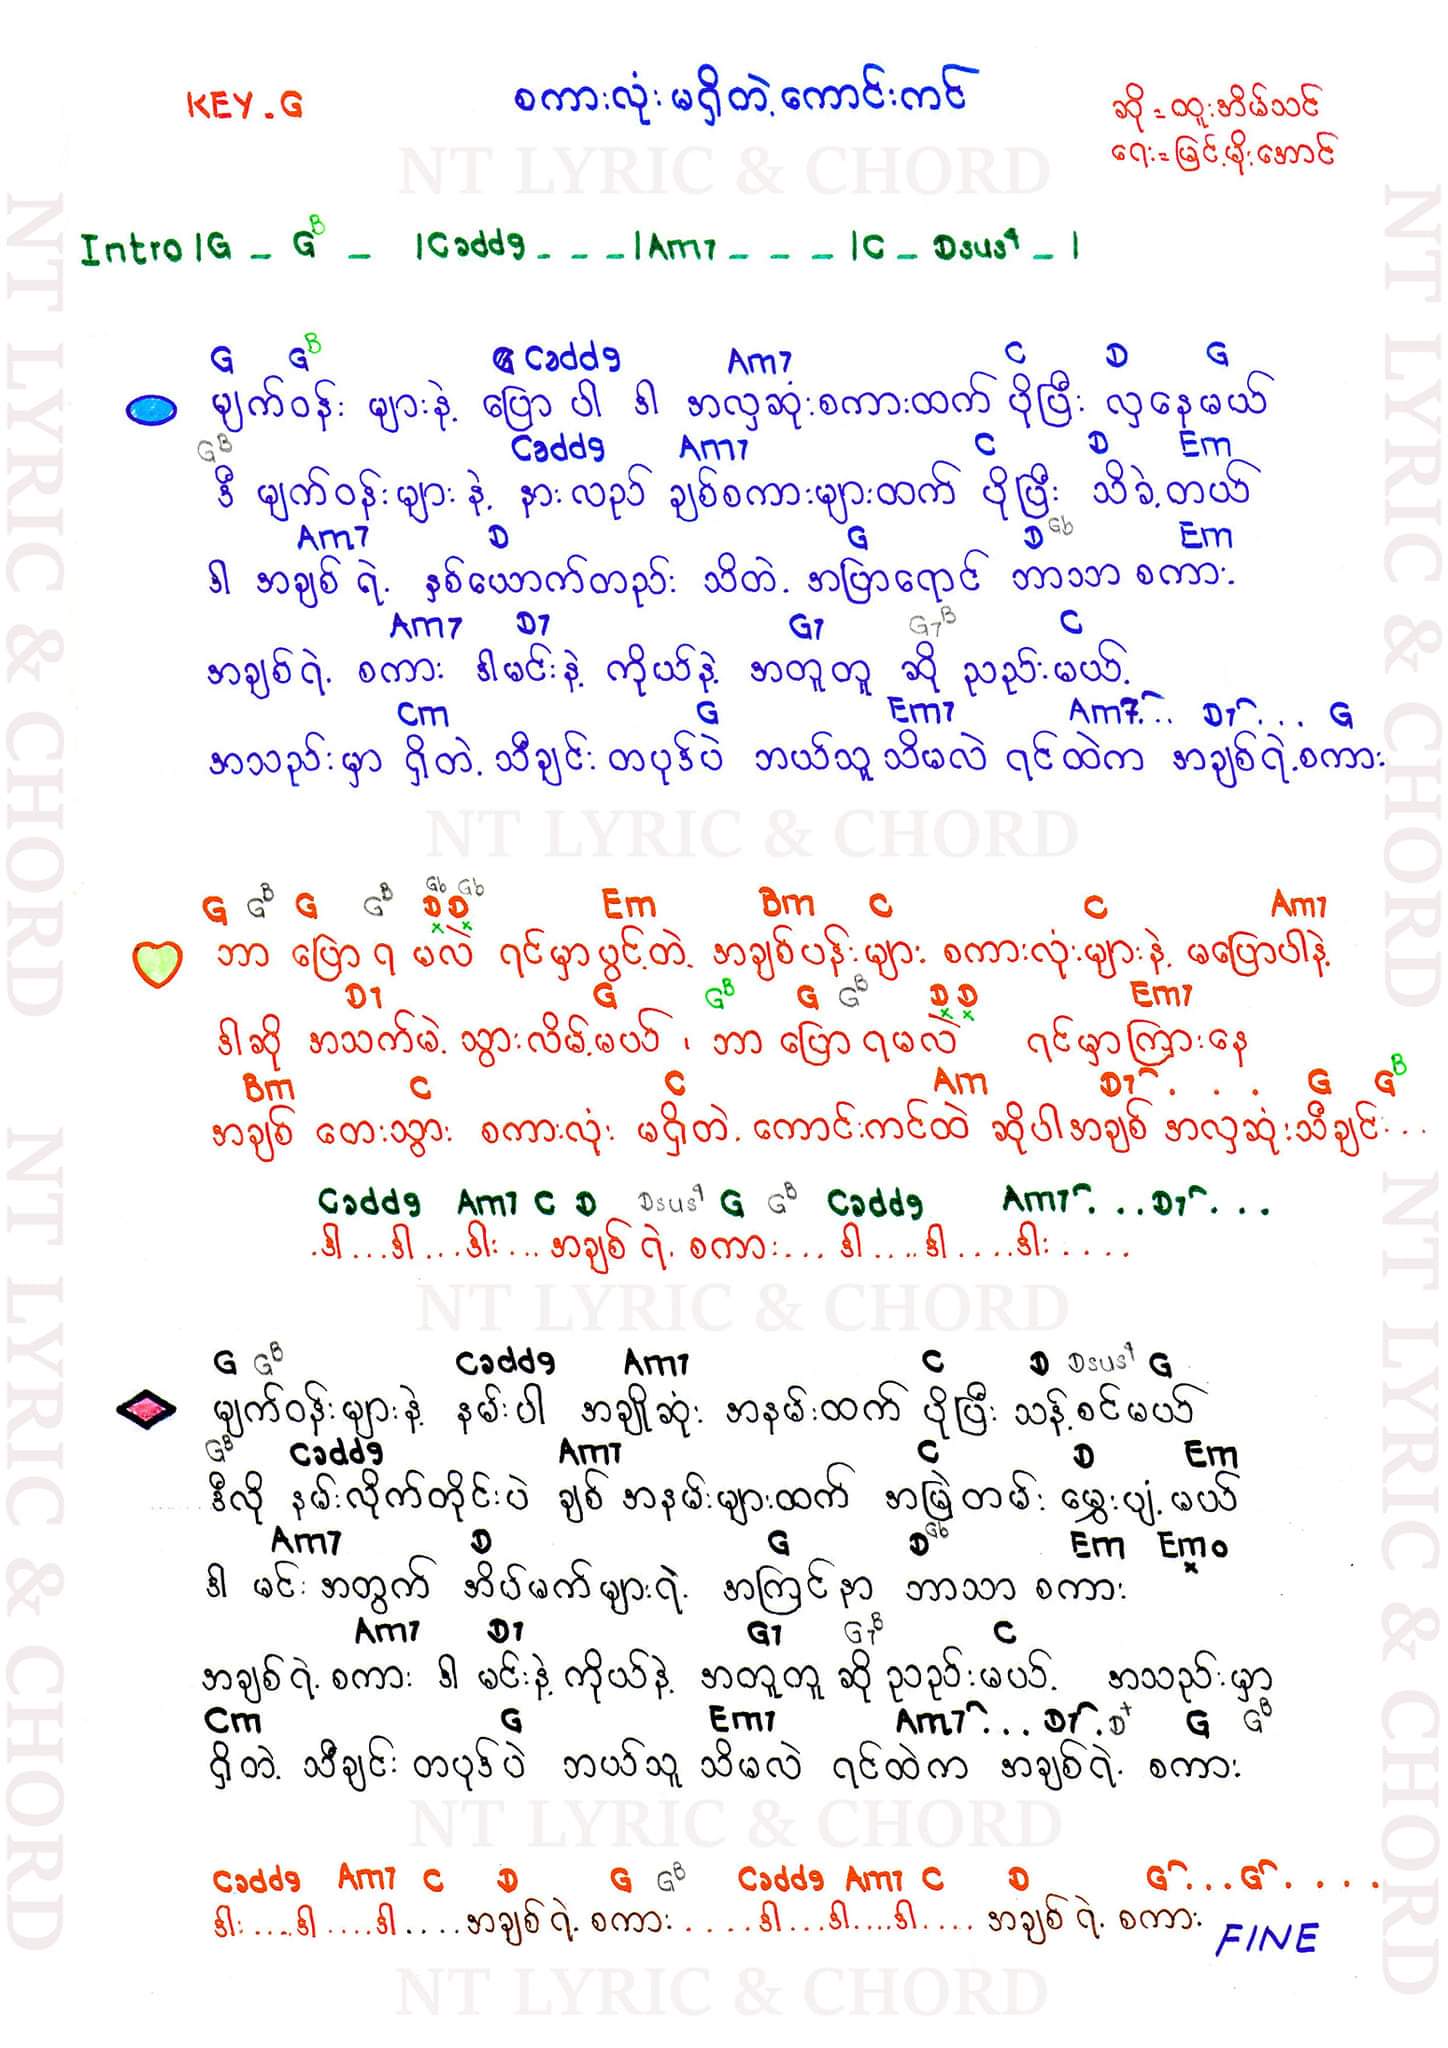 KEY.G
စကားလုံးမရှိတဲ့ကောင်းကင်
ဆို = ထူးအိမ်သင်
ရေး = မြင့်မိုးအောင်
NT LYRIC & CHORD
Intro |G _ G^B _ |Cadd9 _ _ _ |Am7 _ _ _ |C _ Dsus4 _ |
G G^B Cadd9 Am7 C D G
မျက်ဝန်း များနဲ့ ပြော ပါ ဒါ အလှဆုံးစကားထက် ပိုပြီး လှနေမယ်
G^B Cadd9 Am7 C D Em
ဒီ မျက်ဝန်းများ နဲ့ နားလည် ချစ်စကားများထက် ပိုပြီး သိခဲ့တယ်
Am7 D G D Gb Em
ဒါ အချစ် ရဲ့ နှစ်ယောက်တည်း သိတဲ့ အပြာရောင် ဘာသာ စကား
Am7 D7 G7 G7^B C
အချစ်ရဲ့ စကား ဒါမင်းနဲ့ ကိုယ်နဲ့ အတူတူ ဆို ညည်းမယ်
Cm G Em7 Am7... D7... G
အသည်းမှာ ရှိတဲ့ သီချင်း တပုဒ်ပဲ ဘယ်သူ သိမလဲ ရင်ထဲက အချစ်ရဲ့စကား
NT LYRIC & CHORD
G G^B G G^B D Gb D Gb Em Bm C C Am7
ဘာ ပြော ရ မလဲ ရင်မှာပွင့်တဲ့ အချစ်ပန်းများ စကားလုံးများနဲ့ မပြောပါနဲ့
D7 G G^B G G^B D D Em7
ဒါဆို အသက်မဲ့ သွားလိမ့်မယ် ၊ ဘာ ပြော ရမလဲ ရင်မှာကြားနေ
Bm C C Am D7 . . . G G^B
အချစ် တေးသွား စကားလုံး မရှိတဲ့ ကောင်းကင်ထဲ ဆိုပါအချစ် အလှဆုံးသီချင်း...
Cadd9 Am7 C D Dsus4 G G^B Cadd9 Am7... D7...
.ဒါ...ဒါ...ဒါး... အချစ် ရဲ့ စကား... ဒါ....ဒါ....ဒါး....
NT LYRIC & CHORD
G G^B Cadd9 Am7 C D Dsus4 G
မျက်ဝန်းများနဲ့ နမ်းပါ အချိုဆုံး အနမ်းထက် ပိုပြီး သန့်စင်မယ်
G^B Cadd9 Am7 C D Em
ဒီလို နမ်းလိုက်တိုင်းပဲ ချစ် အနမ်းများထက် အမြဲတမ်း မွှေးပျံ့မယ်
Am7 D G D Gb Em Em0
ဒါ မင်း အတွက် အိပ်မက်များရဲ့ အကြင်နာ ဘာသာ စကား
Am7 D7 G7 G7^B C
အချစ်ရဲ့ စကား ဒါ မင်းနဲ့ ကိုယ်နဲ့ အတူတူ ဆို ညည်းမယ် အသည်းမှာ
Cm G Em7 Am7... D7. D+ G G^B
ရှိတဲ့ သီချင်း တပုဒ်ပဲ ဘယ်သူ သိမလဲ ရင်ထဲက အချစ်ရဲ့ စကား
NT LYRIC & CHORD
Cadd9 Am7 C D G G^B Cadd9 Am7 C D G... G.....
ဒါး....ဒါ....ဒါ....အချစ် ရဲ့ စကား.....ဒါ...ဒါ....ဒါ.... အချစ် ရဲ့ စကား
FINE
NT LYRIC & CHORD
NT LYRIC & CHORD NT LYRIC & CHORD
NT LYRIC & CHORD NT LYRIC & CHORD